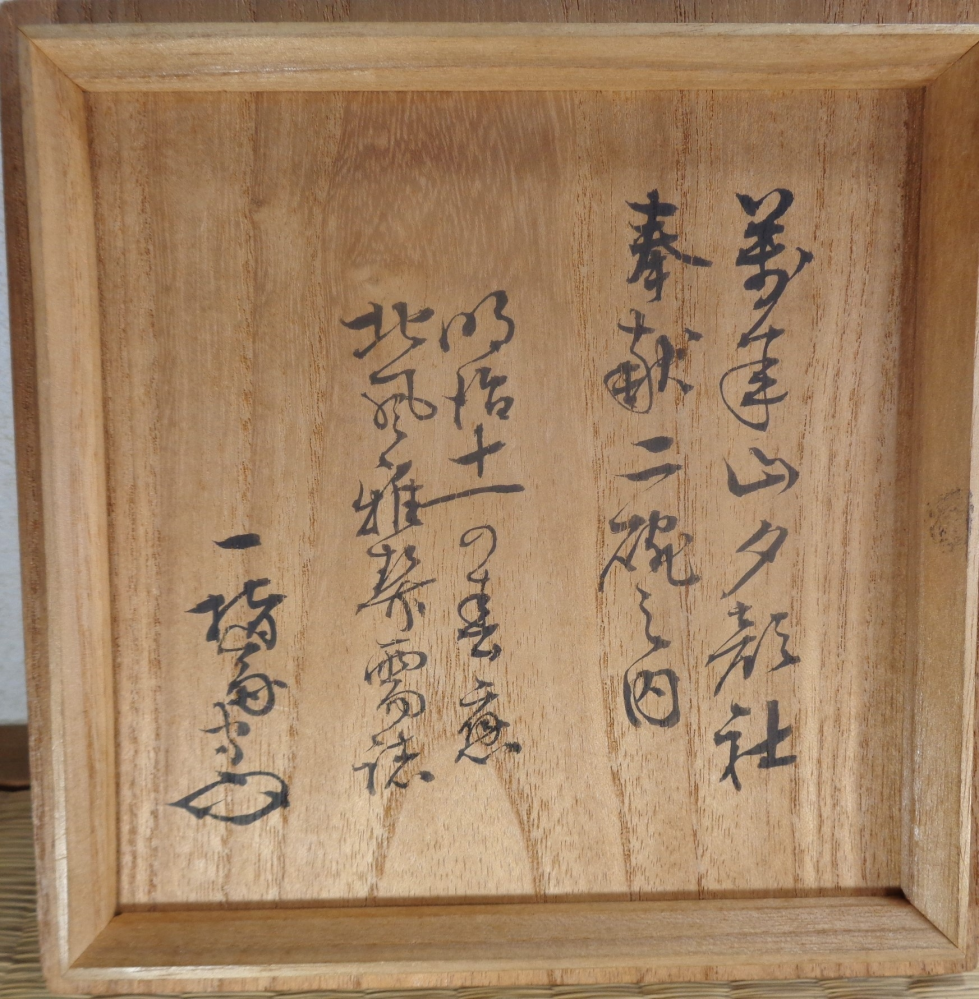 萬年山夕顔社
奉献二碗之内
明治十一の春應
北風雅契需誌
一指斎